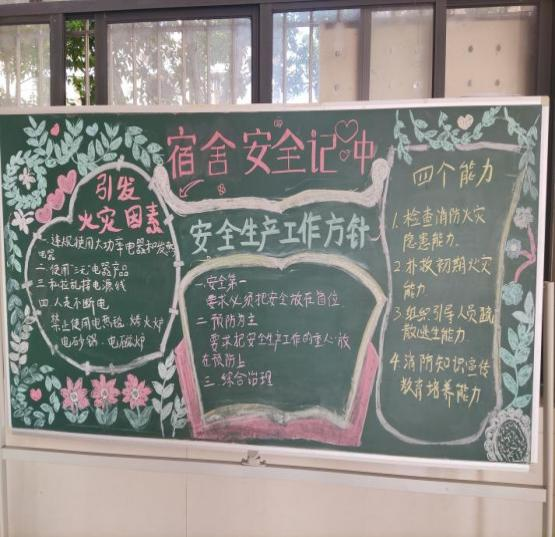 宿舍安全记♡中
引发
火灾因素
一.违规使用大功率电器和发热
电器
二.使用"三无"电器产品
三.私拉乱接电源线
四.人走不断电
禁止使用电热毯 烤火炉
电砂锅.电磁炉
安全生产工作方针
一.安全第一
要求必须把安全放在首位
二.预防为主
要求把安全生产工作的重心放
在预防上
三.综合治理
四个能力
1.检查消防火灾
隐患能力.
2.扑救初期火灾
能力
3.组织引导人员疏
散逃生能力.
4.消防知识宣传
教育培养能力